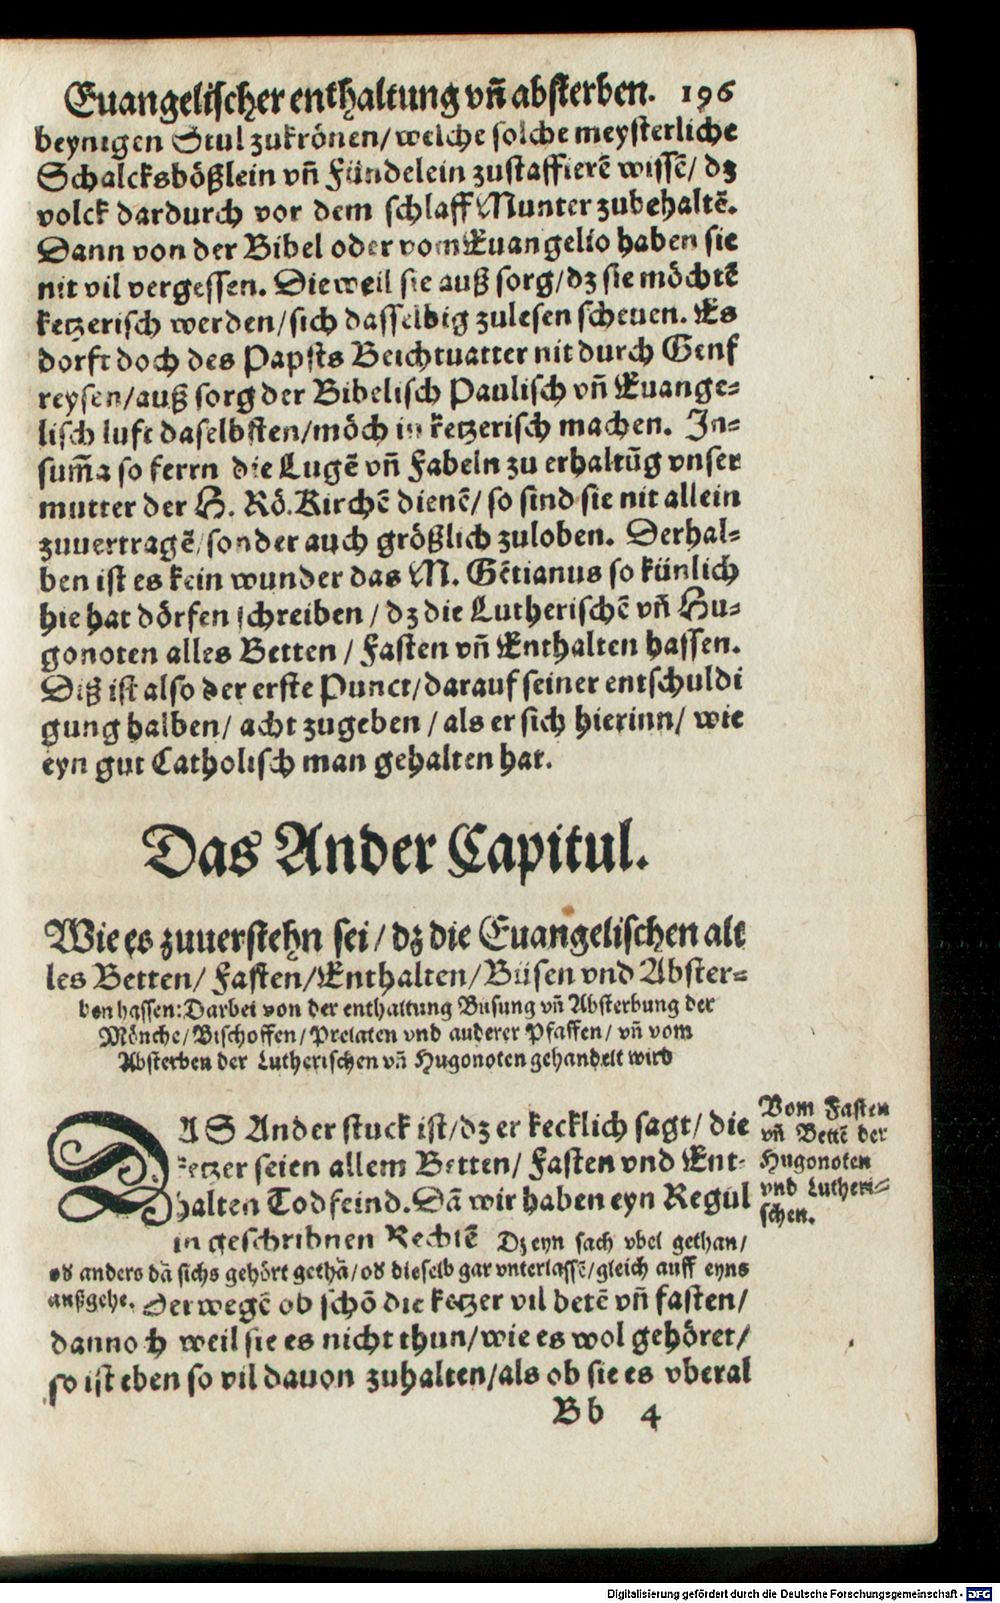 Euangelischer enthaltung vn̄ absterben. 196
beynigen Stul zukrönen/ welche solche meysterliche
Schalcksbößlein vn̄ Fündelein zustaffierē wissē/ dz
volck dardurch vor dem schlaff Munter zubehaltē.
Dann von der Bibel oder vom Euangelio haben sie
nit vil vergessen. Dieweil sie auß sorg/ dz sie möchtē
ketzerisch werden/ sich dasselbig zulesen scheuen. Es
dorft doch des Papsts Beichtuatter nit durch Genf
reysen/ auß sorg der Bibelisch Paulisch vn̄ Euange-
lisch luft daselbsten/ möch in ketzerisch machen. In-
sum̄a so ferrn die Lugē vn̄ Fabeln zu erhaltūg vnser
mutter der H. Rö. Kirchē dienē/ so sind sie nit allein
zuuertragē/ sonder auch größlich zuloben. Derhal-
ben ist es kein wunder das M. Gētianus so künlich
hie hat dörfen schreiben / dz die Lutherischē vn̄ Hu-
gonoten alles Betten / Fasten vn̄ Enthalten hassen.
Diß ist also der erste Punct/ darauf seiner entschuldi
gung halben/ acht zugeben / als er sich hierinn/ wie
eyn gut Catholisch man gehalten hat.
Das Ander Capitul.
Wie es zuuerstehn sei / dz die Euangelischen all
les Betten/ Fasten/ Enthalten/ Büsen vnd Abster-
ben hassen: Darbei von der enthaltung Busung vn̄ Absterbung der
Mönche/ Bischoffen/ Prelaten vnd anderer Pfaffen/ vn̄ vom
Absterben der Lutherischen vn̄ Hugonoten gehandelt wird
DAS Ander stuck ist/ dz er kecklich sagt/ die
ketzer seien allem Betten/ Fasten vnd Ent-
halten Todfeind. Dā wir haben eyn Regul
in geschribnen Rechtē Dz eyn sach vbel gethan/
ob anders dā sichs gehört gethā/ ob dieselb gar vnterlassē/ gleich auff eyns
außgehe. Derwegē ob schō die ketzer vil betē vn̄ fasten/
dannoch weil sie es nicht thun/ wie es wol gehöret/
so ist eben so vil dauon zuhalten/ als ob sie es vberal
Bb 4
Vom Fasten
vn̄ Bettē der
Hugonoten
vnd Lutheri-
schen.
Digitalisierung gefördert durch die Deutsche Forschungsgemeinschaft - DFG